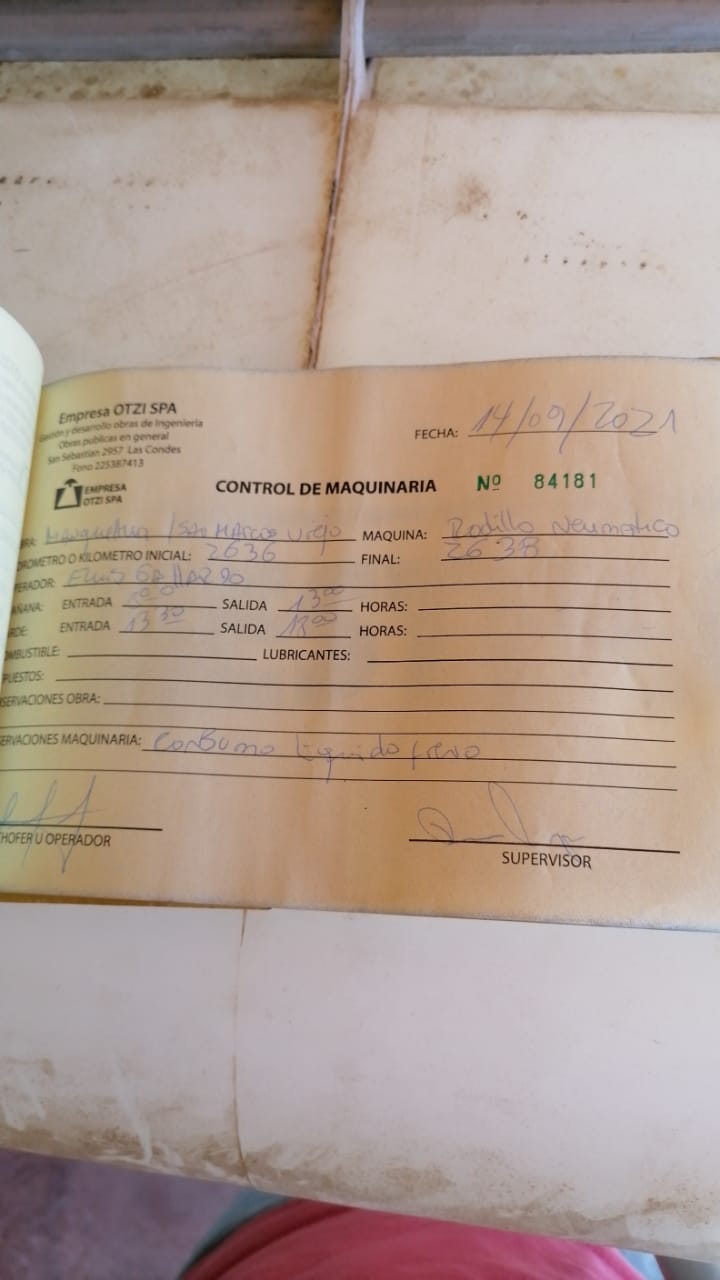 Empresa OTZI SPA
Gestión y desarrollo obras de Ingeniería
Obras publicas en general
San Sebastian 2957 Las Condes
Fono 225387413
EMPRESA
OTZI SPA
FECHA: 14/09/2021
CONTROL DE MAQUINARIA Nº 84181
BRA: /San Marcos Viejo MAQUINA: Rodillo Neumatico
OROMETRO O KILOMETRO INICIAL: 2636 FINAL: 2638
PERADOR: GALLARDO
AÑANA: ENTRADA SALIDA 13 00 HORAS:
RDE: ENTRADA 13 30 SALIDA 18 00 HORAS:
MBUSTIBLE: LUBRICANTES:
PUESTOS:
SERVACIONES OBRA:
ERVACIONES MAQUINARIA: Consumo liquido freno
HOFER U OPERADOR
SUPERVISOR